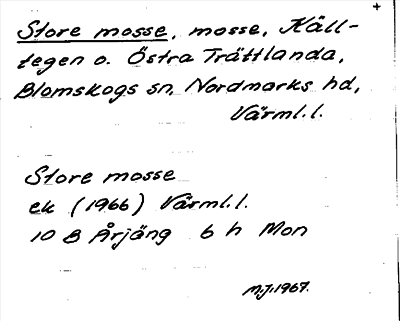 +
Store mosse, mosse, Käll-
tegen o. Östra Trättlanda,
Blomskogs sn, Nordmarks hd,
Värml. l.
Store mosse
ek (1966) Värml. l.
10 B Årjäng 6 h Mon
M.J. 1967.